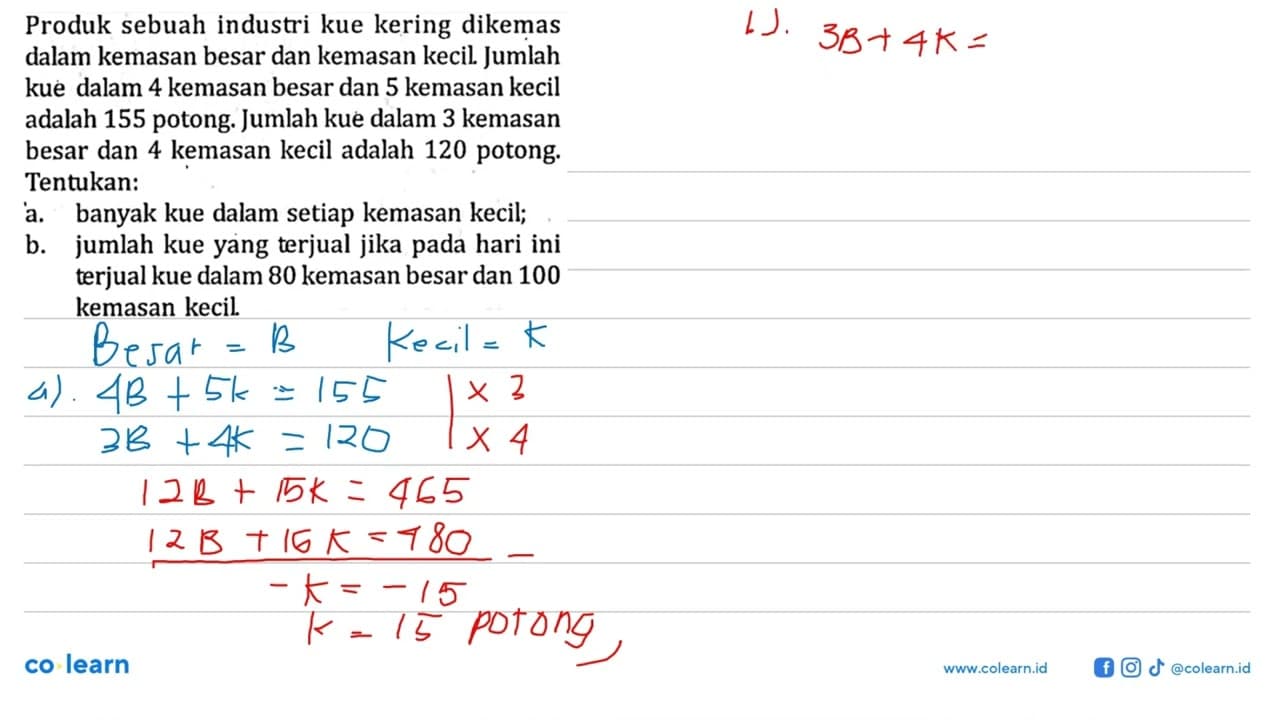 Produk sebuah industri kue kering dikemas
dalam kemasan besar dan kemasan kecil. Jumlah
kue dalam 4 kemasan besar dan 5 kemasan kecil
adalah 155 potong. Jumlah kue dalam 3 kemasan
besar dan 4 kemasan kecil adalah 120 potong.
Tentukan:
a. banyak kue dalam setiap kemasan kecil;
b. jumlah kue yang terjual jika pada hari ini
terjual kue dalam 80 kemasan besar dan 100
kemasan kecil.
Besar = B Kecil = K
a). 4B + 5k = 155 | x 3
3B + 4K = 120 | x 4
12B + 15K = 465
12B + 16K = 480 -
-k = -15
k = 15 potong,
b). 3B + 4K =
co learn
www.colearn.id @colearn.id